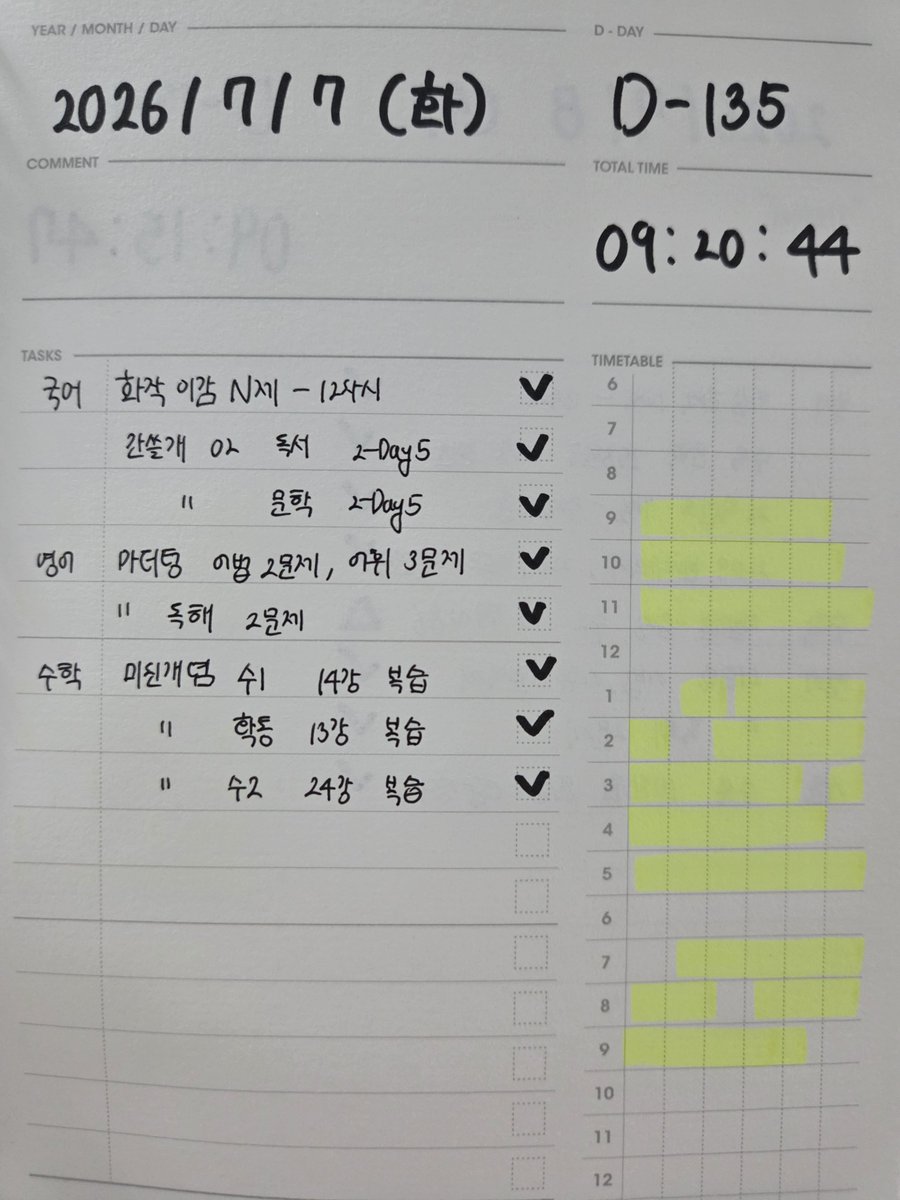 YEAR / MONTH / DAY
2026/7/7 (화)
D - DAY
D-135
COMMENT
TOTAL TIME
09:20:44
TASKS
국어 화작 이감 N제 - 12회시
간쓸개 02 독서 2-Day5
" 문학 2-Day5
영어 마더텅 어법 2문제, 어휘 3문제
" 독해 2문제
수학 미친개념 수1 14강 복습
" 확통 13강 복습
" 수2 24강 복습
TIMETABLE
6
7
8
9
10
11
12
1
2
3
4
5
6
7
8
9
10
11
12